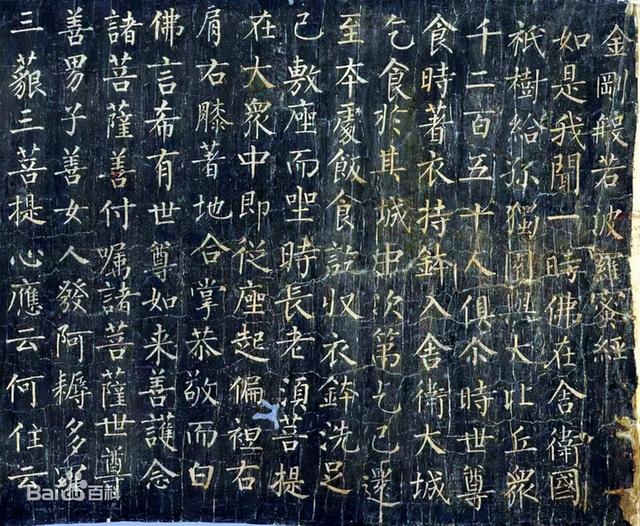 金剛般若波羅蜜經
如是我聞一時佛在舍衛國
祇樹給孤獨園與大比丘眾
千二百五十人俱尒時世尊
食時著衣持鉢入舍衛大城
乞食於其城中次第乞已還
至本處飯食訖収衣鉢洗足
已敷座而坐時長老須菩提
在大眾中即從座起偏袒右
肩右膝著地合掌恭敬而白
佛言希有世尊如来善護念
諸菩薩善付嘱諸菩薩世尊
善男子善女人發阿耨多羅
三藐三菩提心應云何住云
Baidu百科